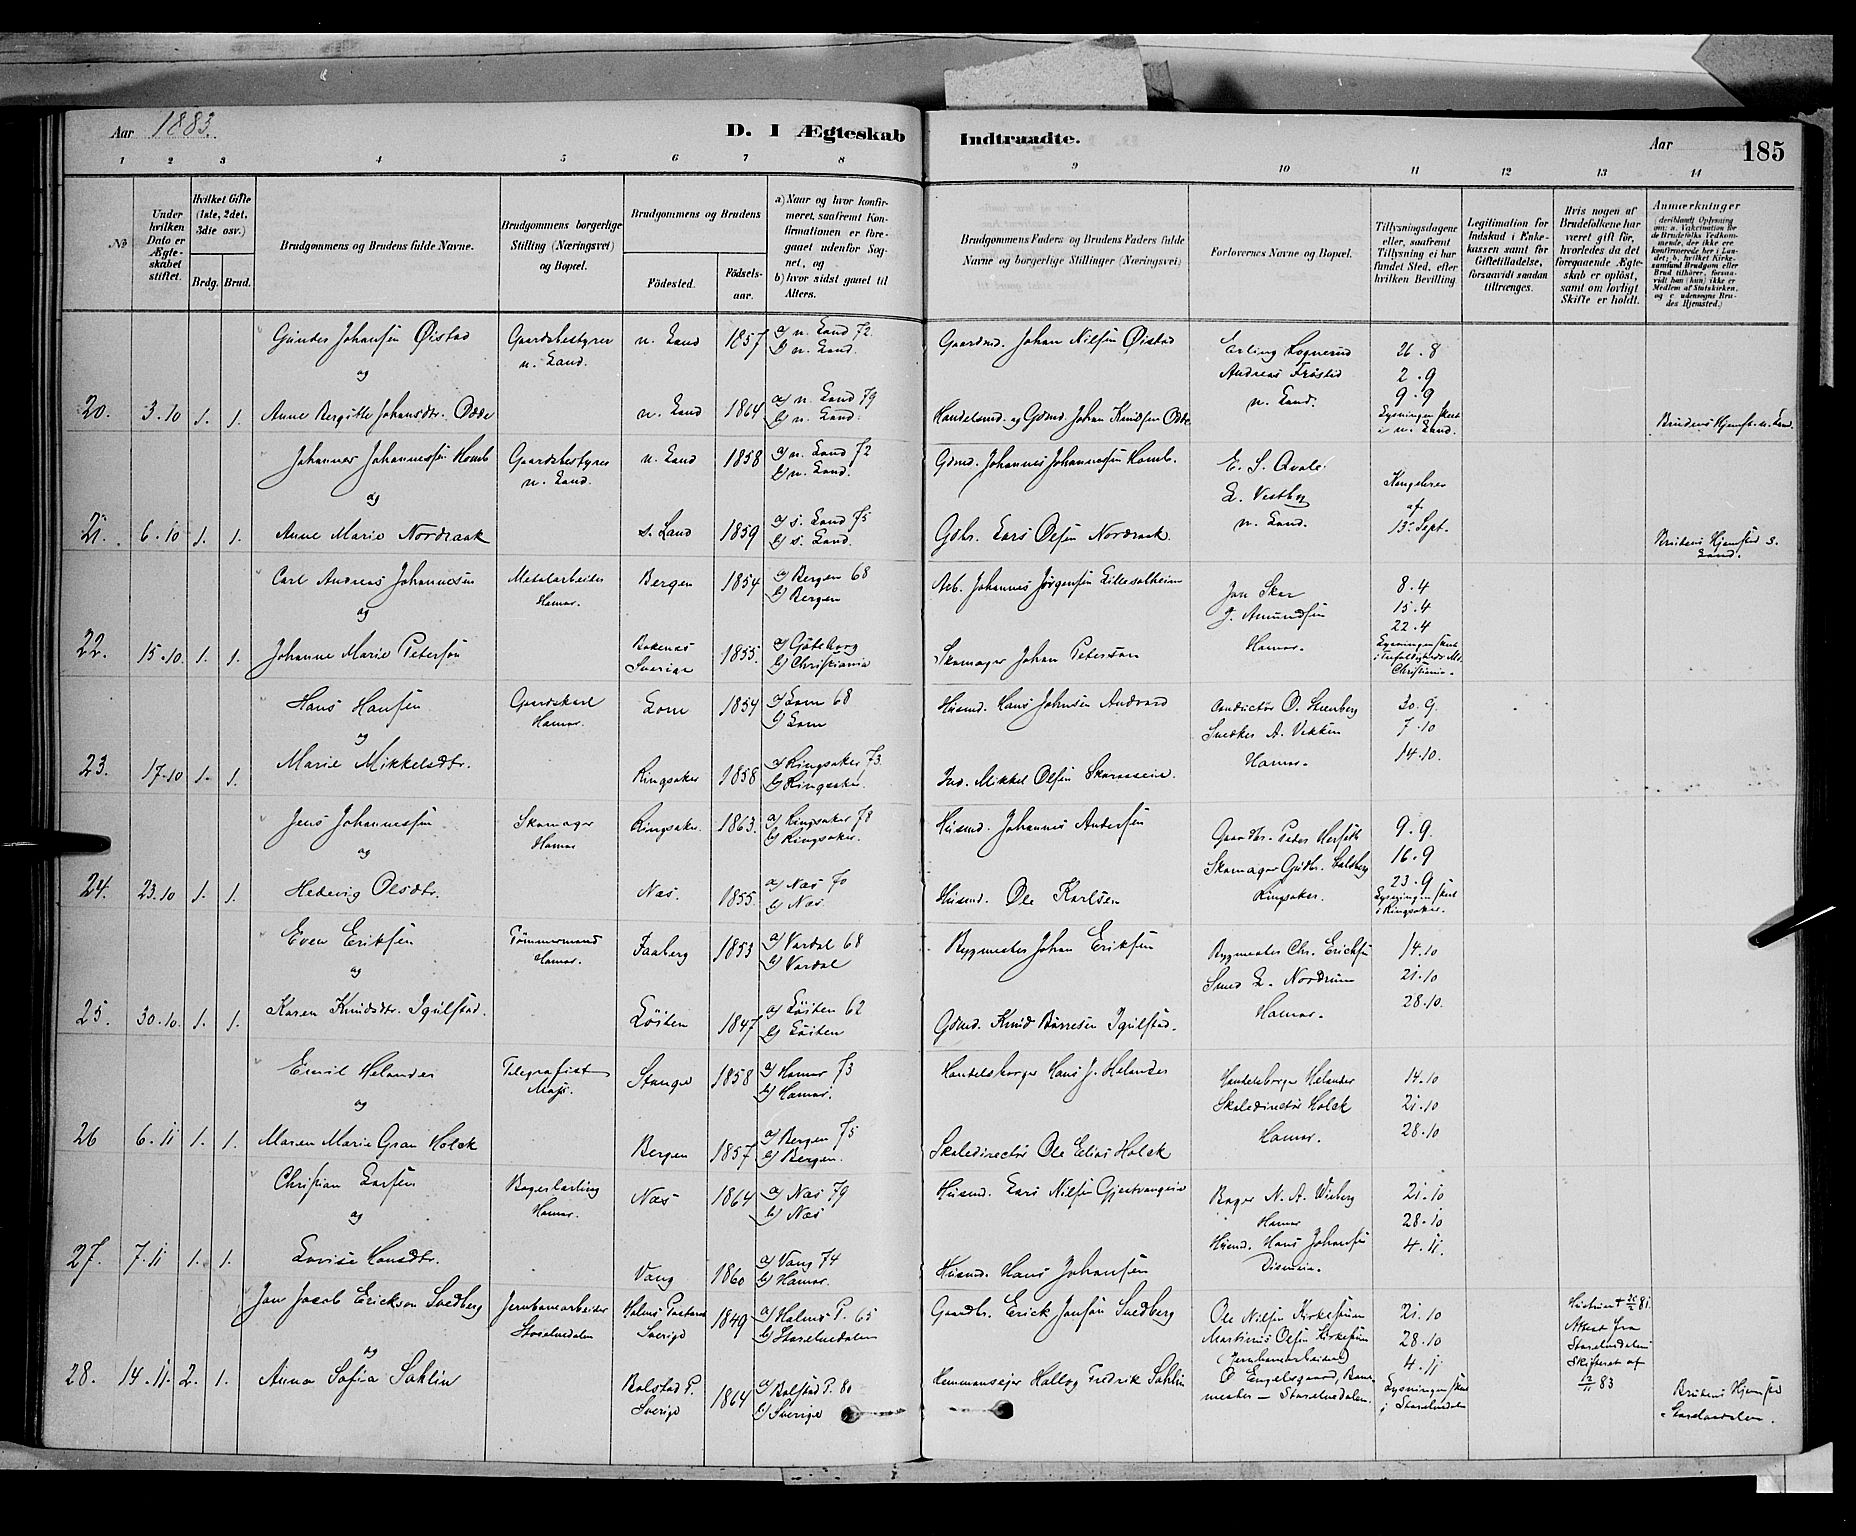 Aar 1883.
D. I Ægteskab Indtraadte.
Aar 185
1 2 3 4 5 6 7 8 9 10 11 12 13 14
№
Under hvilken Dato er Ægteskabet stiftet.
Hvilket Gifte (1ste, 2det, 3die osv.)
Brdg. Brud.
Brudgommens og Brudens fulde Navne.
Brudgommens borgerlige Stilling (Næringsvei) og Bopæl.
Brudgommens og Brudens
Fødested.
Fødselsaar.
a) Naar og hvor konfirmeret, saafremt Konfirmationen er foregaaet udenfor Sognet, og
b) hvor sidst gaaet til Alters.
Brudgommens Faders og Brudens Faders fulde Navne og borgerlige Stillinger (Næringsvei)
Forlovernes Navne og Bopæl.
Tillysningsdagene eller, saafremt Tillysning ei har fundet Sted, efter hvilken Bevilling.
Legitimation for Indskud i Enkekassen samt for Giftetilladelse, forsaavidt saadan tiltrænges.
Hvis nogen af Brudefolkene har været gift før, hvorledes da det foregaaende Ægteskab er opløst, samt om lovligt Skifte er holdt.
Anmærkninger
Gunder Johansen Øistad Gaardsbestyrer n. Land n. Land 1857 a) n. Land 72 b) n. Land. Gaardmd. Johan Nilsen Øistad
og
20. 3.10 1. 1. Anne Bergitte Johansdtr. Odde n. Land 1864 a) n. Land 79 b) n. Land. Handelsmd. og Gdmd. Johan Knudsen Odde
Erling Lognerud Andreas Frøstad n. Land. 26.8 2.9 9.9 Lysningen skeet i n. Land. Brudens Hjemst. n. Land.
Johannes Johannessen Homb Gaardsbestyrer n. Land. n. Land 1858 a) n. Land 72 b) n. Land. Gdmd. Johannes Johannessen Homb.
og
21. 6.10 1. 1. Anne Marie Nordraak s. Land 1859 a) s. Land 75 b) s. Land. Gdbr. Lars Olsen Nordraak.
E. S. Qvale L. Vestby n. Land. Kongebrev af 13. Sept. Brudens Hjemsted s. Land.
Carl Andreas Johannesen Metalarbeider Hamar. Bergen 1854 a) Bergen 68 b) Bergen Arb. Johannes Jørgensen Lillesolheim
og
22. 15.10. 1. 1. Johanne Marie Petersen Bokenäs Sverige 1855. a) Göteborg b) Christiania Skomager Johan Peterson
Jon Skar J. Amundsen Hamar. 8.4 15.4 22.4 Lysningen skeet i Trefoldigheds M. Christiania.
Hans Hansen Gaardskarl Hamar. Lom 1854 a) Lom 68 b) Lom Husmd. Hans Johnsen Andvord
og
23. 17.10 1. 1. Marie Mikkelsdtr. Ringsaker 1858 a) Ringsaker 73. b) Ringsaker. Ind. Mikkel Olsen
Conductør O. Steenberg Snedker A. Vekken Hamar. 30.9. 7.10 14.10.
Jens Johannessen Skomager Hamar Ringsaker. 1863. a) Ringsaker 78 b) Ringsaker. Husmd. Johannes Andersen
og
24. 23.10 1. 1. Hedevig Olsdtr. Næs. 1855. a) Næs 70 b) Næs. Husmd. Ole Karlsen
Gaardbr. Peder Skomager Gudbr. Ringsaker. 9.9. 16.9 23.9 Lysningen skeet i Ringsaker.
Even Eriksen Tømmermand Hamar. Faaberg 1853 a) Vardal 68 b) Vardal Bygmester Johan Eriksen
og
25. 30.10. 1. 1. Karen Knudsdtr. Igulstad. Löiten 1847 a) Löiten 62 b) Löiten Gdmd. Knud Børresen Igulstad.
Bygmester Chr. Ericksen Smed L. Nordrum Hamar. 14.10 21.10 28.10.
Emil Helander Telegrafist Moss. Stange 1858 a) Hamar 73 b) Hamar. Handelsborger Hans J. Helander
og
26 6.11 1. 1. Maren Marie Gran Holck Bergen 1857 a) Bergen 75 b) Bergen. Skoledirectör Ole Elias Holck
Handelsborger Helander Skoledirectör Holck Hamar. 14.10 21.10 28.10
Christian Larsen Bagerlærling Hamar. Næs 1864 a) Næs 79 b) Næs Husmd. Lars Nilsen Gjestvangeie
og
27. 7.11 1. 1. Lovise Hansdtr. Vang 1860 a) Vang 74 b) Hamar. Husmd. Hans Johansen
Bager N. A. Wiberg Hamar Husmd. Hans Johansen 21.10 28.10 4.11.
Jan Jacob Erickson Svedberg Jernbanearbeider Storelvedalen Holms Pastorat Sverige 1849 a) Holms P. 65 b) Storelvedalen Gaardbr. Erick Jonsön Svedberg
og
28. 14.11. 2. 1. Anna Sofia Sahlin Bolstad P. Sverige 1864 a) Bolstad P. 80 b) Sverige Hemmansejer Hallog Fredrik Sahlin
Ole Nilsen Kirkestuen Martinus Olsen Kirkestuen (Jernbanearbeidere) O Engelsgaard, Banemester – Storelvedalen. 21.10 28.10 4.11 Lysningen skeet i Storelvedalen
Hustruen + 81. Attest fra Storelvedalen Skifteret af 12/11 83
Brudens Hjemsted Storelvedalen.